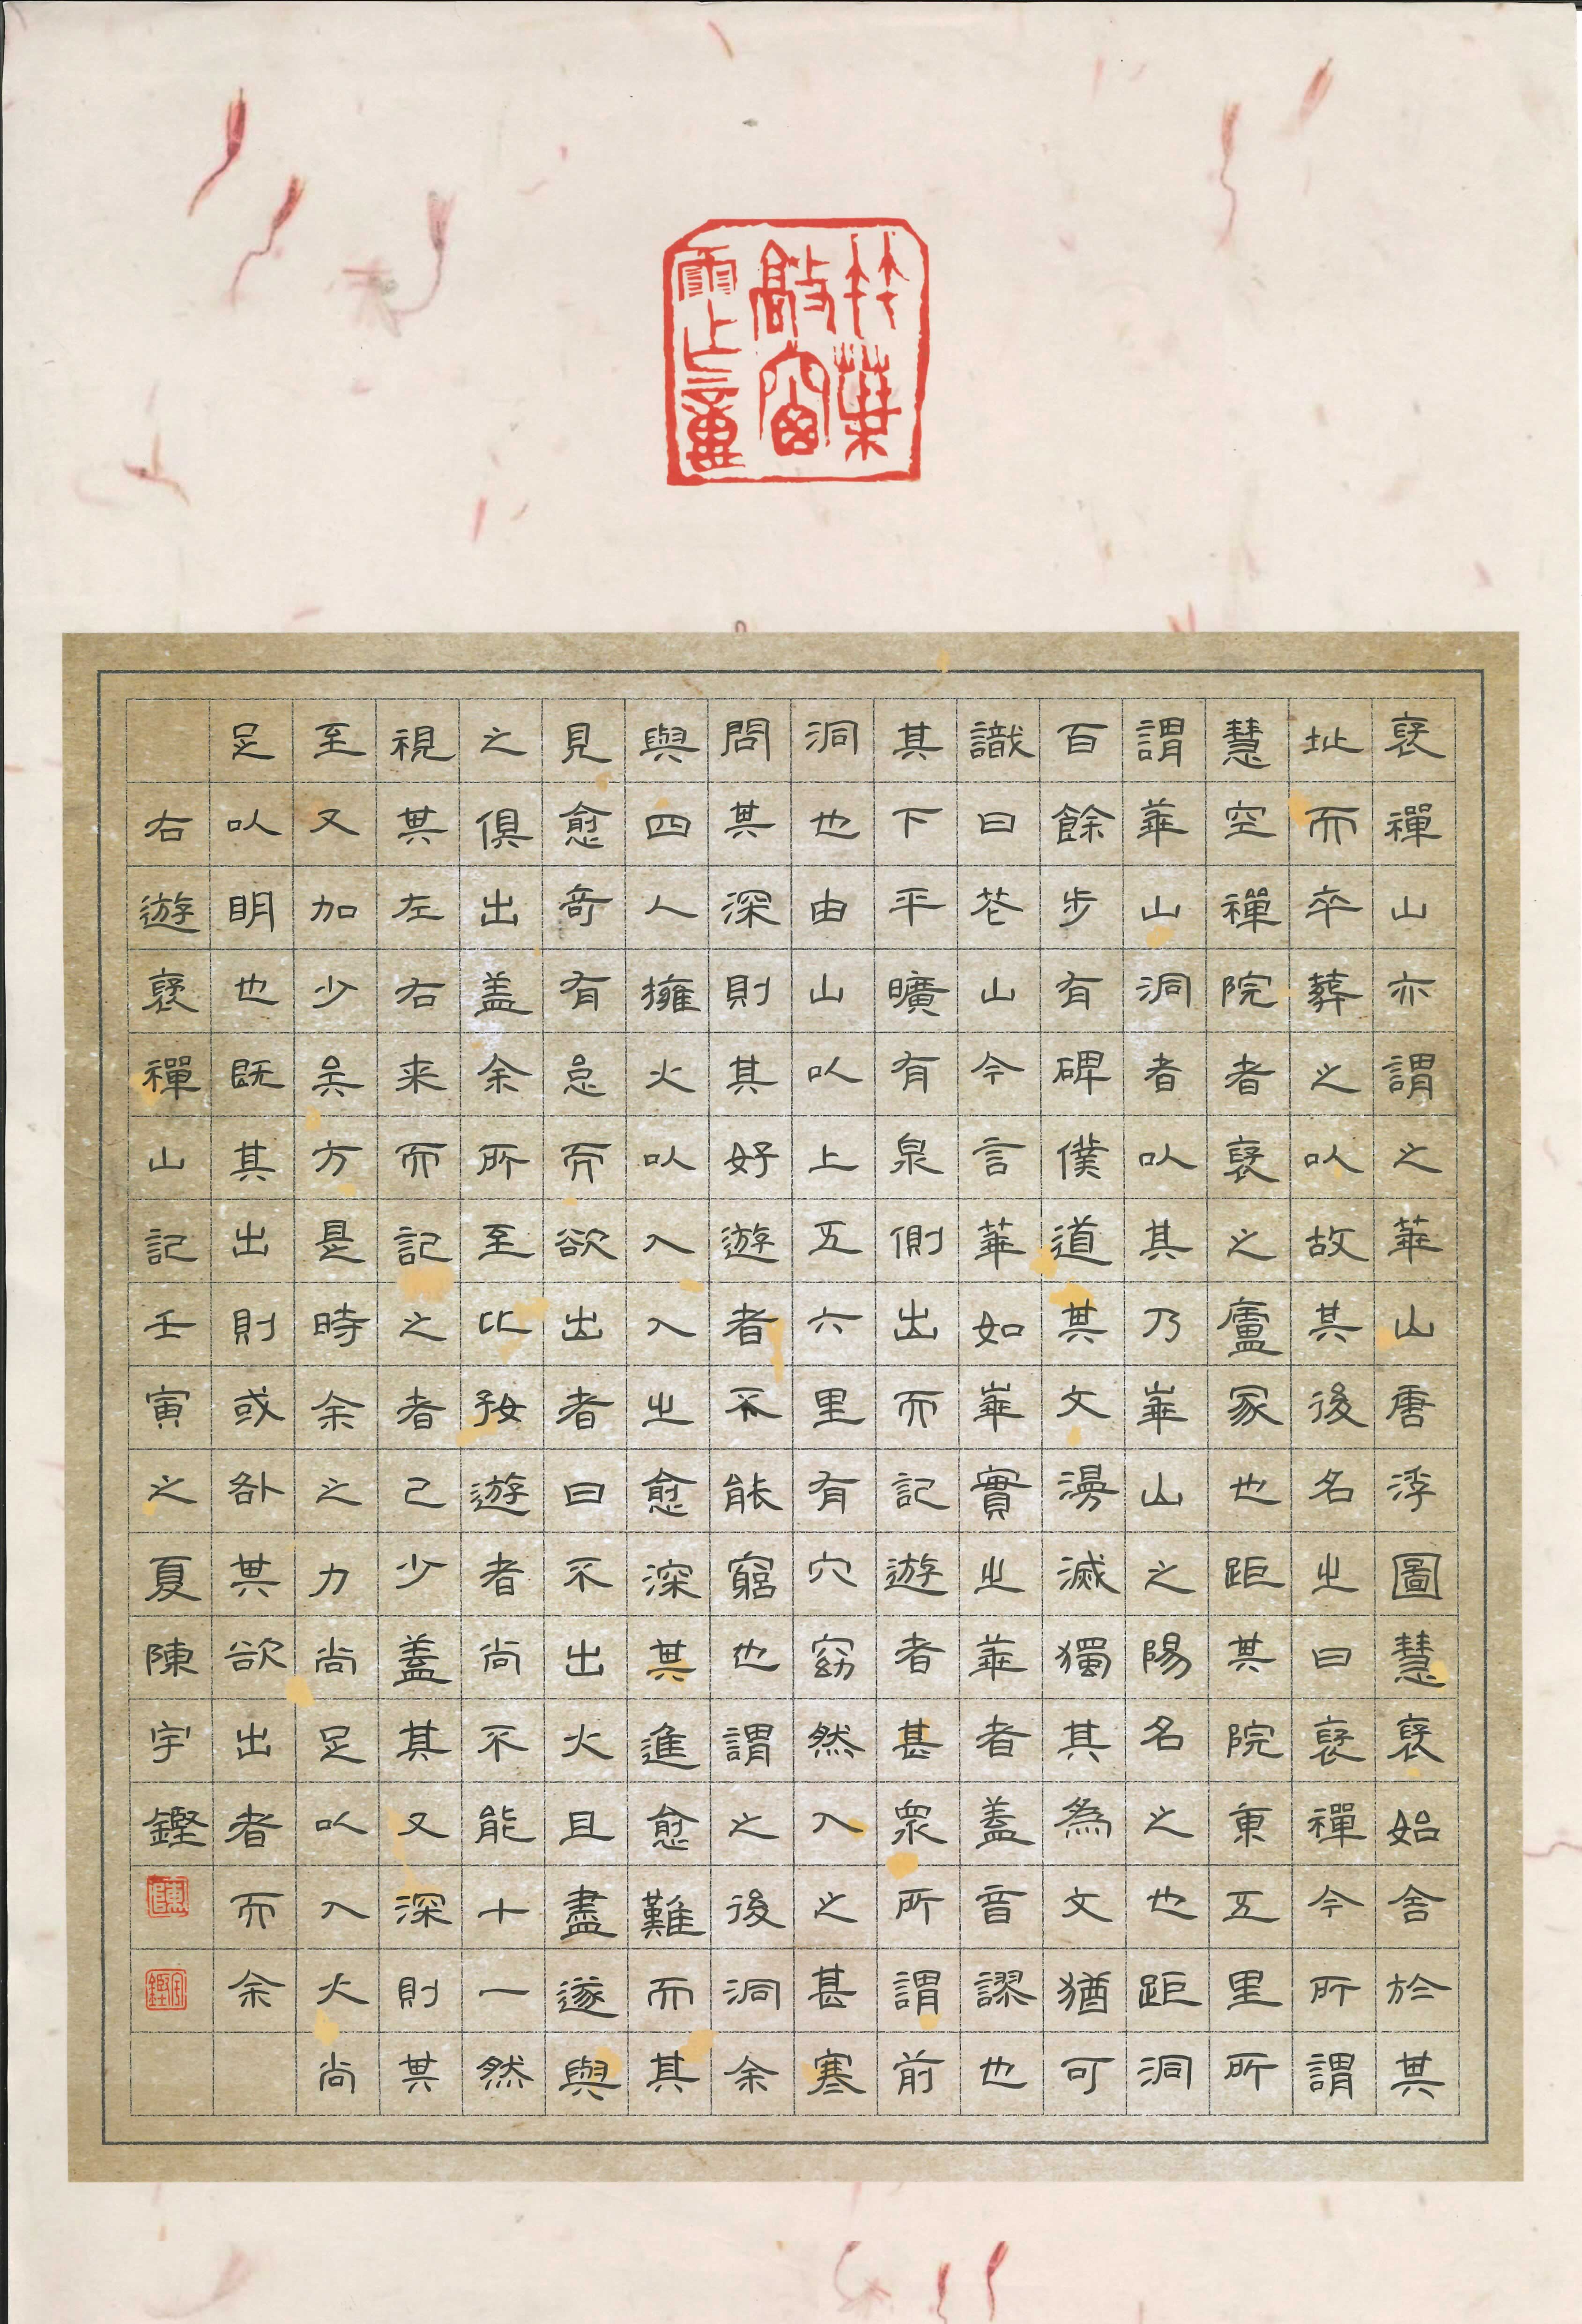 竹葉
敲窗
褒禪山亦謂之華山唐浮圖慧褒始舍於其
址而卒葬之以故其後名之曰褒禪今所謂
慧空禪院者褒之廬冢也距其院東五里所
謂華山洞者以其乃華山之陽名之也距洞
百餘步有碑僕道其文漫滅獨其為文猶可
識曰花山今言華如華實之華者蓋音謬也
其下平曠有泉側出而記遊者甚衆所謂前
洞也由山以上五六里有穴窈然入之甚寒
問其深則其好遊者不能窮也謂之後洞余
與四人擁火以入入之愈深其進愈難而其
見愈奇有怠而欲出者曰不出火且盡遂與
之俱出盖余所至比好遊者尚不能十一然
視其左右来而記之者已少盖其又深則其
至又加少矣方是時余之力尚足以入火尚
足以明也既其出則或咎其欲出者而余
右遊褒禪山記壬寅之夏陳宇鏗
陳
宇鏗